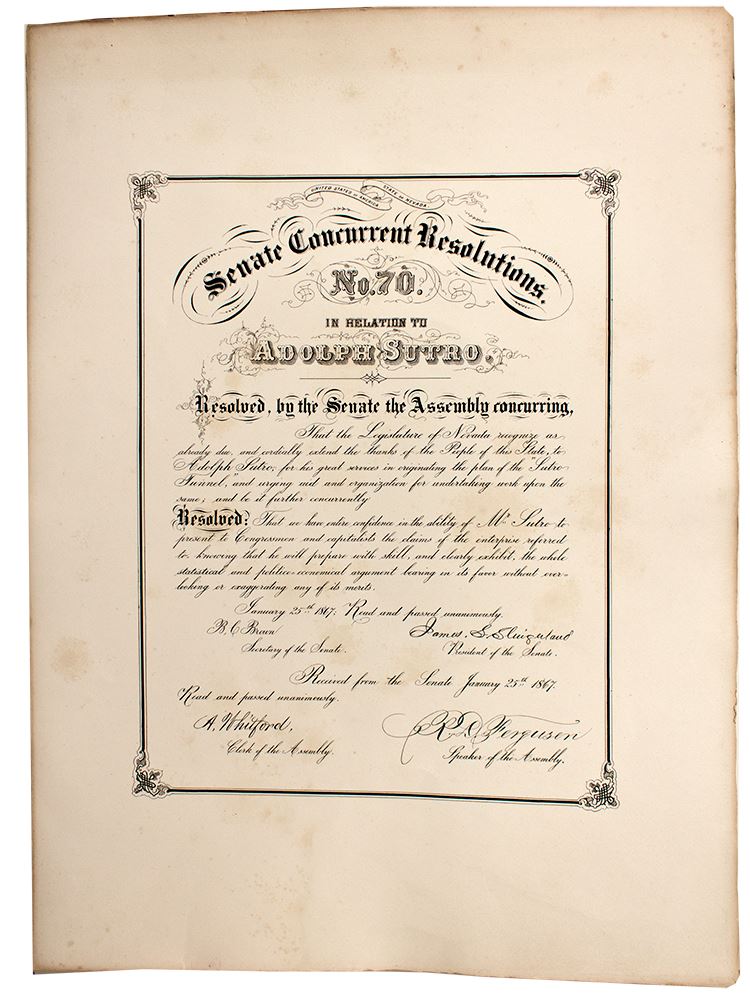 UNITED STATES OF AMERICA STATE OF NEVADA
Senate Concurrent Resolutions.
No. 70.
IN RELATION TO
ADOLPH SUTRO.
Resolved, by the Senate the Assembly concurring,
That the Legislature of Nevada recognize as
already due, and cordially extend the thanks of the People of this State, to
Adolph Sutro, for his great services in originating the plan of the "Sutro
Tunnel," and urging aid and organization for undertaking work upon the
same; and be it further concurrently
Resolved: That we have entire confidence in the ability of Mr. Sutro to
present to Congressmen and capitalists the claims of the enterprise referred
to knowing that he will prepare with skill, and clearly exhibit, the whole
statistical and politico-economical argument bearing in its favor without over-
looking or exaggerating any of its merits.
January 25th 1867. Read and passed unanimously.
B. C. Brown James S. Slingerland
Secretary of the Senate. President of the Senate.
Received from the Senate January 25th 1867.
Read and passed unanimously.
A. Whitford, R. D. Ferguson
Clerk of the Assembly. Speaker of the Assembly.